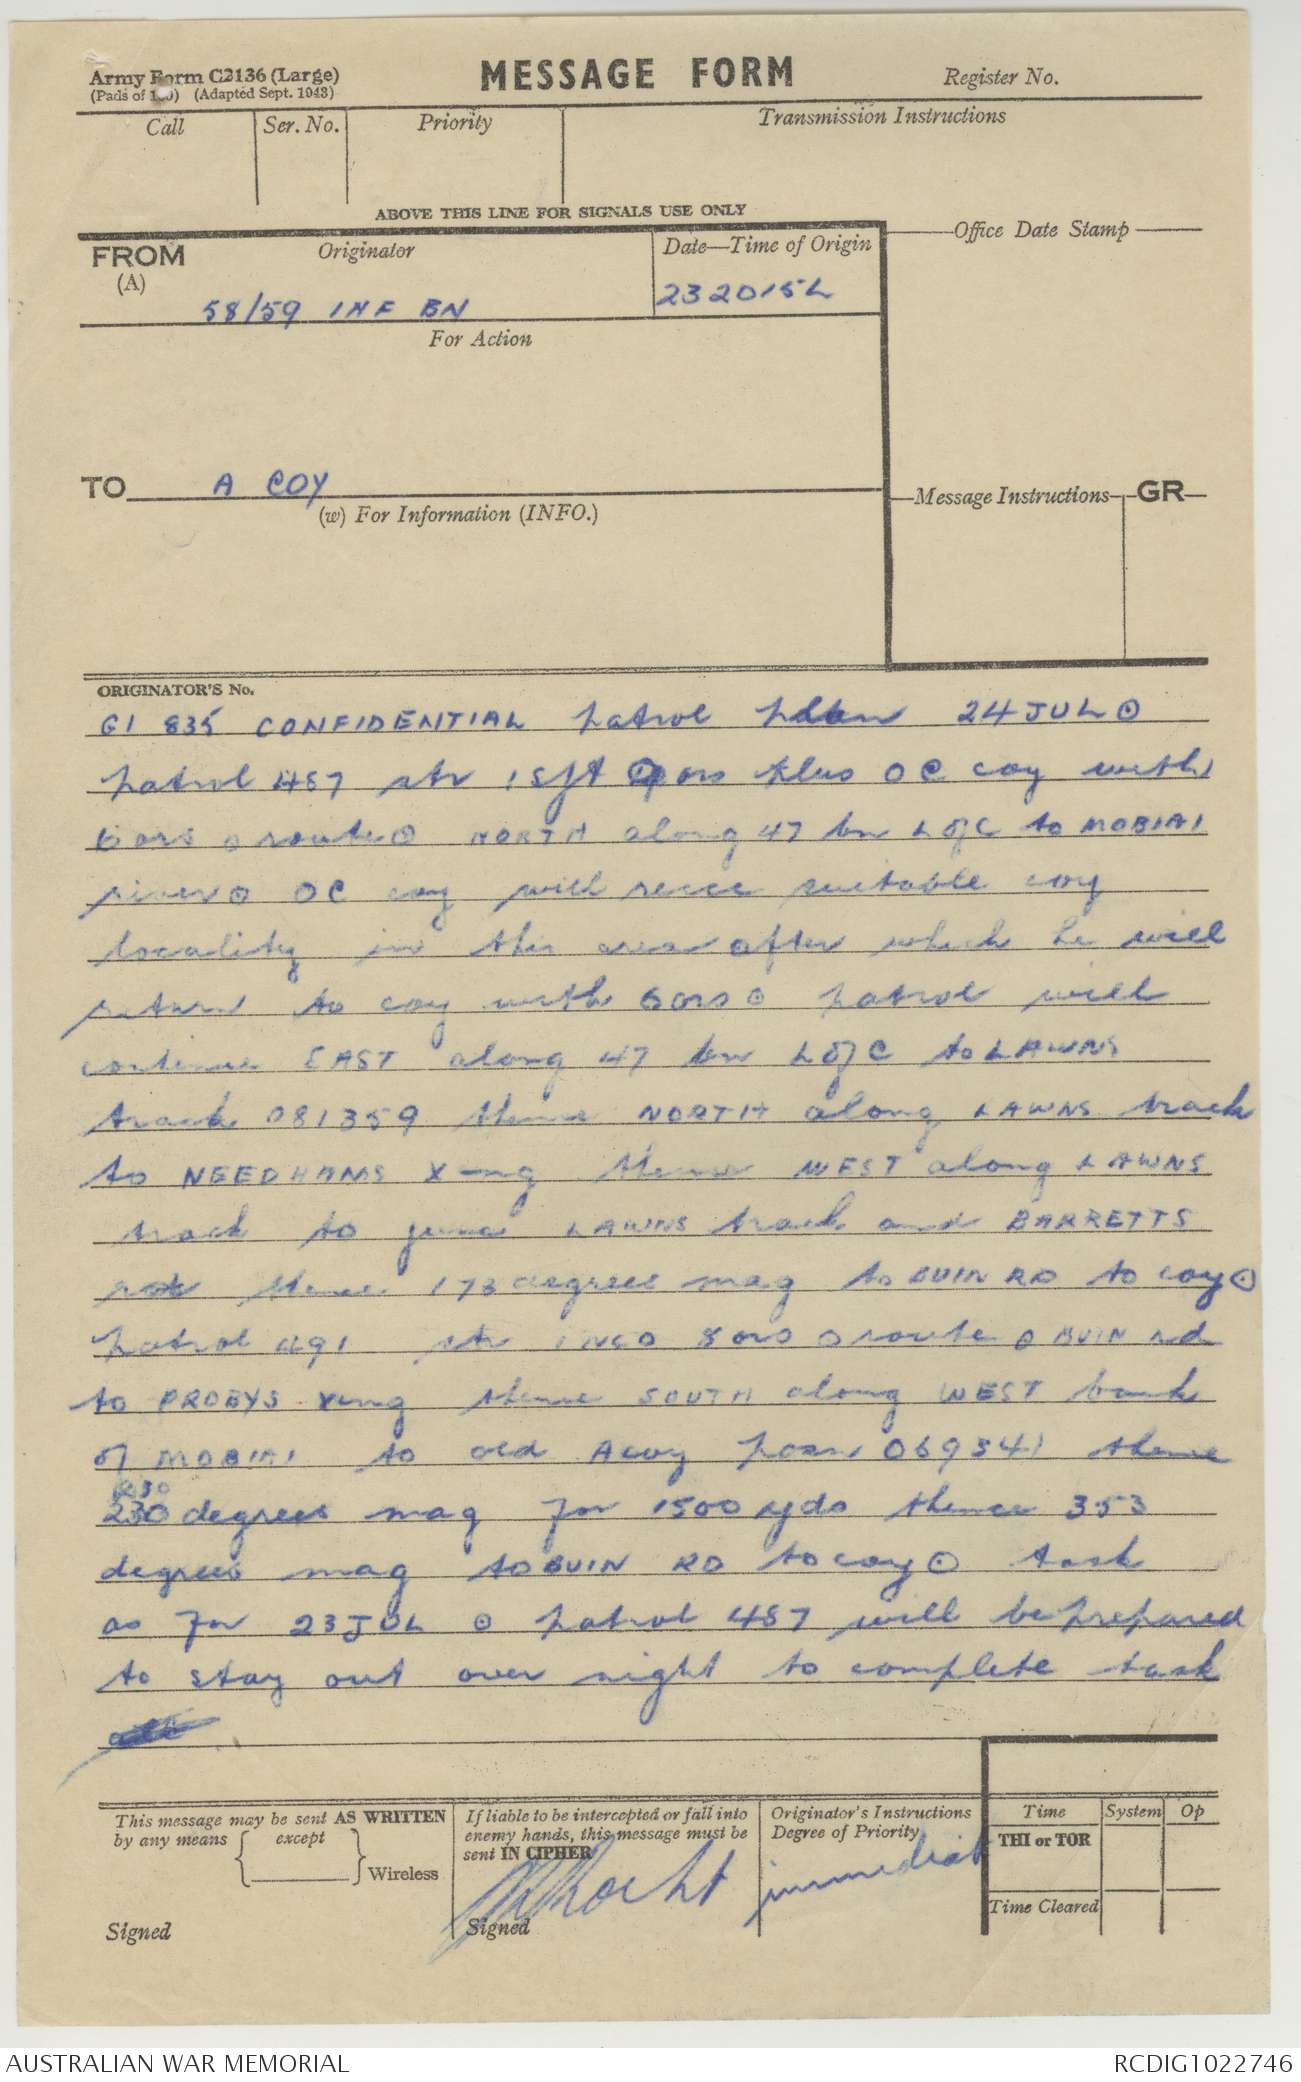 Army Form C2136 (Large)
MESSAGE FORM
Register No.
(Pads of 100) (Adapted Sept. 1943)
Call
Ser. No.
Priority
Transmission Instructions
ABOVE THIS LINE FOR SIGNALS USE ONLY
FROM
(A)
Originator
Date—Time of Origin
Office Date Stamp
58/59 INF BN
232015L
For Action
TO A COY
Message Instructions
GR
(w) For Information (INFO.)
ORIGINATOR'S No.
G1 835 CONFIDENTIAL patrol plan 24 JUL ⊙
patrol 487 str 1 sjt 9 ors plus OC coy with
6 ors ⊙ route ⊙ NORTH along 47 bn L of C to MOBIAI
river ⊙ OC coy will recce suitable coy
locality in this area after which he will
return to coy with 6 ors ⊙ patrol will
continue EAST along 47 bn L of C to LAWNS
track 081359 thence NORTH along LAWNS track
to NEEDHAMS X-ng thence WEST along LAWNS
track to junc LAWNS track and BARRETTS
thence 173 degrees mag to BUIN RD to coy ⊙
patrol 491 str 1 NCO 8 ors ⊙ route ⊙ BUIN rd
to PROBYS xing thence SOUTH along WEST bank
of MOBIAI to old A coy posn 069341 thence
230
230 degrees mag for 1500 yds thence 353
degrees mag to BUIN RD to coy ⊙ task
as for 23 JUL ⊙ patrol 487 will be prepared
to stay out over night to complete task
This message may be sent AS WRITTEN
by any means except
Wireless
Signed
If liable to be intercepted or fall into
enemy hands, this message must be
sent IN CIPHER
Signed
Originator's Instructions
Degree of Priority
immediate
Time
System
Op
THI or TOR
Time Cleared
AUSTRALIAN WAR MEMORIAL
RCDIG1022746